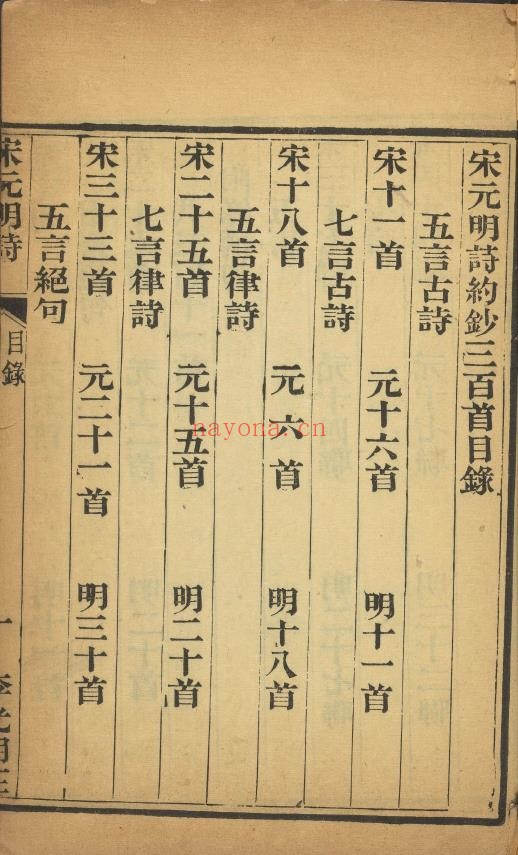 宋元明詩約鈔三百首目錄
五言古詩
宋十一首 元十六首 明十一首
七言古詩
宋十八首 元六首 明十八首
五言律詩
宋二十五首 元十五首 明二十首
七言律詩
宋三十三首 元二十一首 明三十首
五言絕句
宋元明詩 目錄 一 李光明莊
nayona.cn